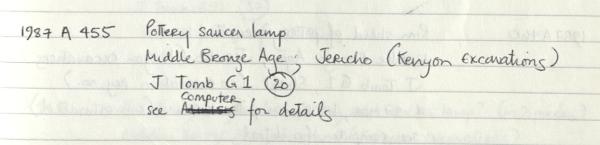 1987 A 455 Pottery saucer lamp
Middle Bronze Age, Jericho (Kenyon excavations)
J Tomb G1 20
see computer for details